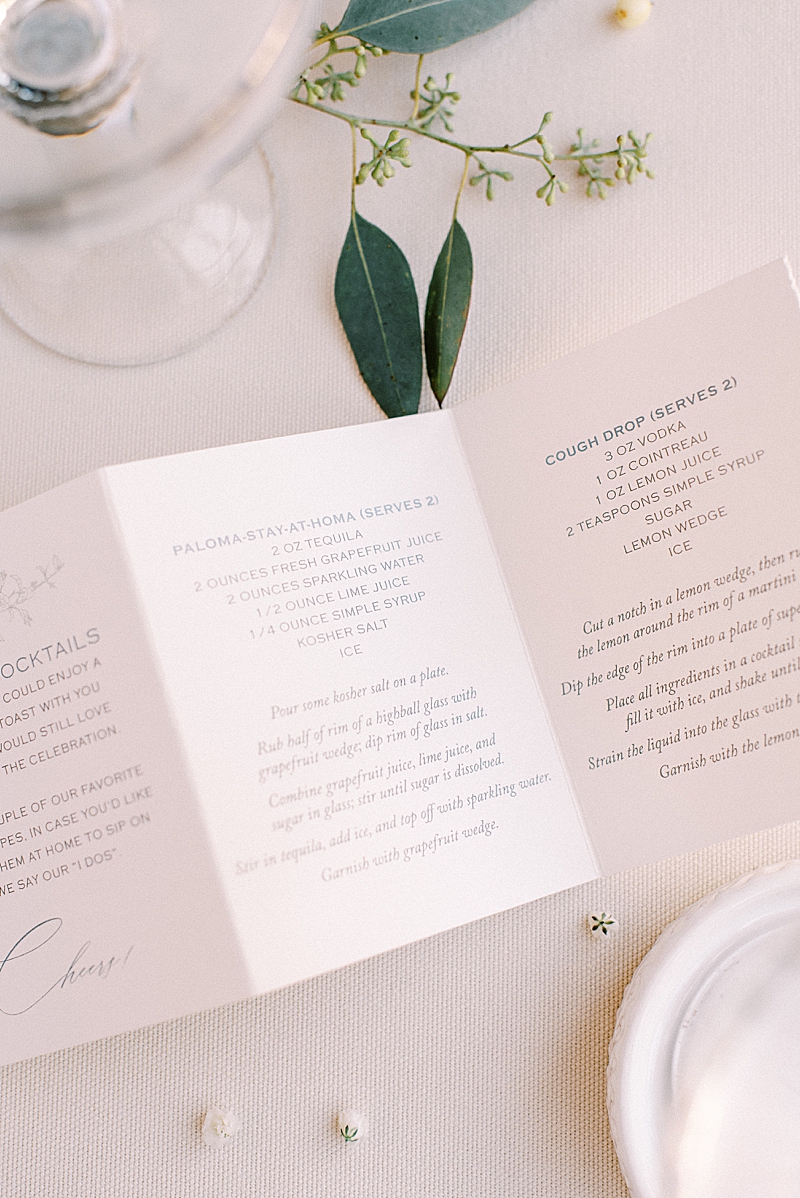 OCKTAILS
COULD ENJOY A
TOAST WITH YOU
WOULD STILL LOVE
THE CELEBRATION.
UPLE OF OUR FAVORITE
PES, IN CASE YOU'D LIKE
HEM AT HOME TO SIP ON
WE SAY OUR "I DOS".
Cheers!
PALOMA-STAY-AT-HOMA (SERVES 2)
2 OZ TEQUILA
2 OUNCES FRESH GRAPEFRUIT JUICE
2 OUNCES SPARKLING WATER
1/2 OUNCE LIME JUICE
1/4 OUNCE SIMPLE SYRUP
KOSHER SALT
ICE
Pour some kosher salt on a plate.
Rub half of rim of a highball glass with
grapefruit wedge; dip rim of glass in salt.
Combine grapefruit juice, lime juice, and
sugar in glass; stir until sugar is dissolved.
Stir in tequila, add ice, and top off with sparkling water.
Garnish with grapefruit wedge.
COUGH DROP (SERVES 2)
3 OZ VODKA
1 OZ COINTREAU
1 OZ LEMON JUICE
2 TEASPOONS SIMPLE SYRUP
SUGAR
LEMON WEDGE
ICE
Cut a notch in a lemon wedge, then ru
the lemon around the rim of a martini
Dip the edge of the rim into a plate of supe
Place all ingredients in a cocktail
fill it with ice, and shake until
Strain the liquid into the glass with t
Garnish with the lemon